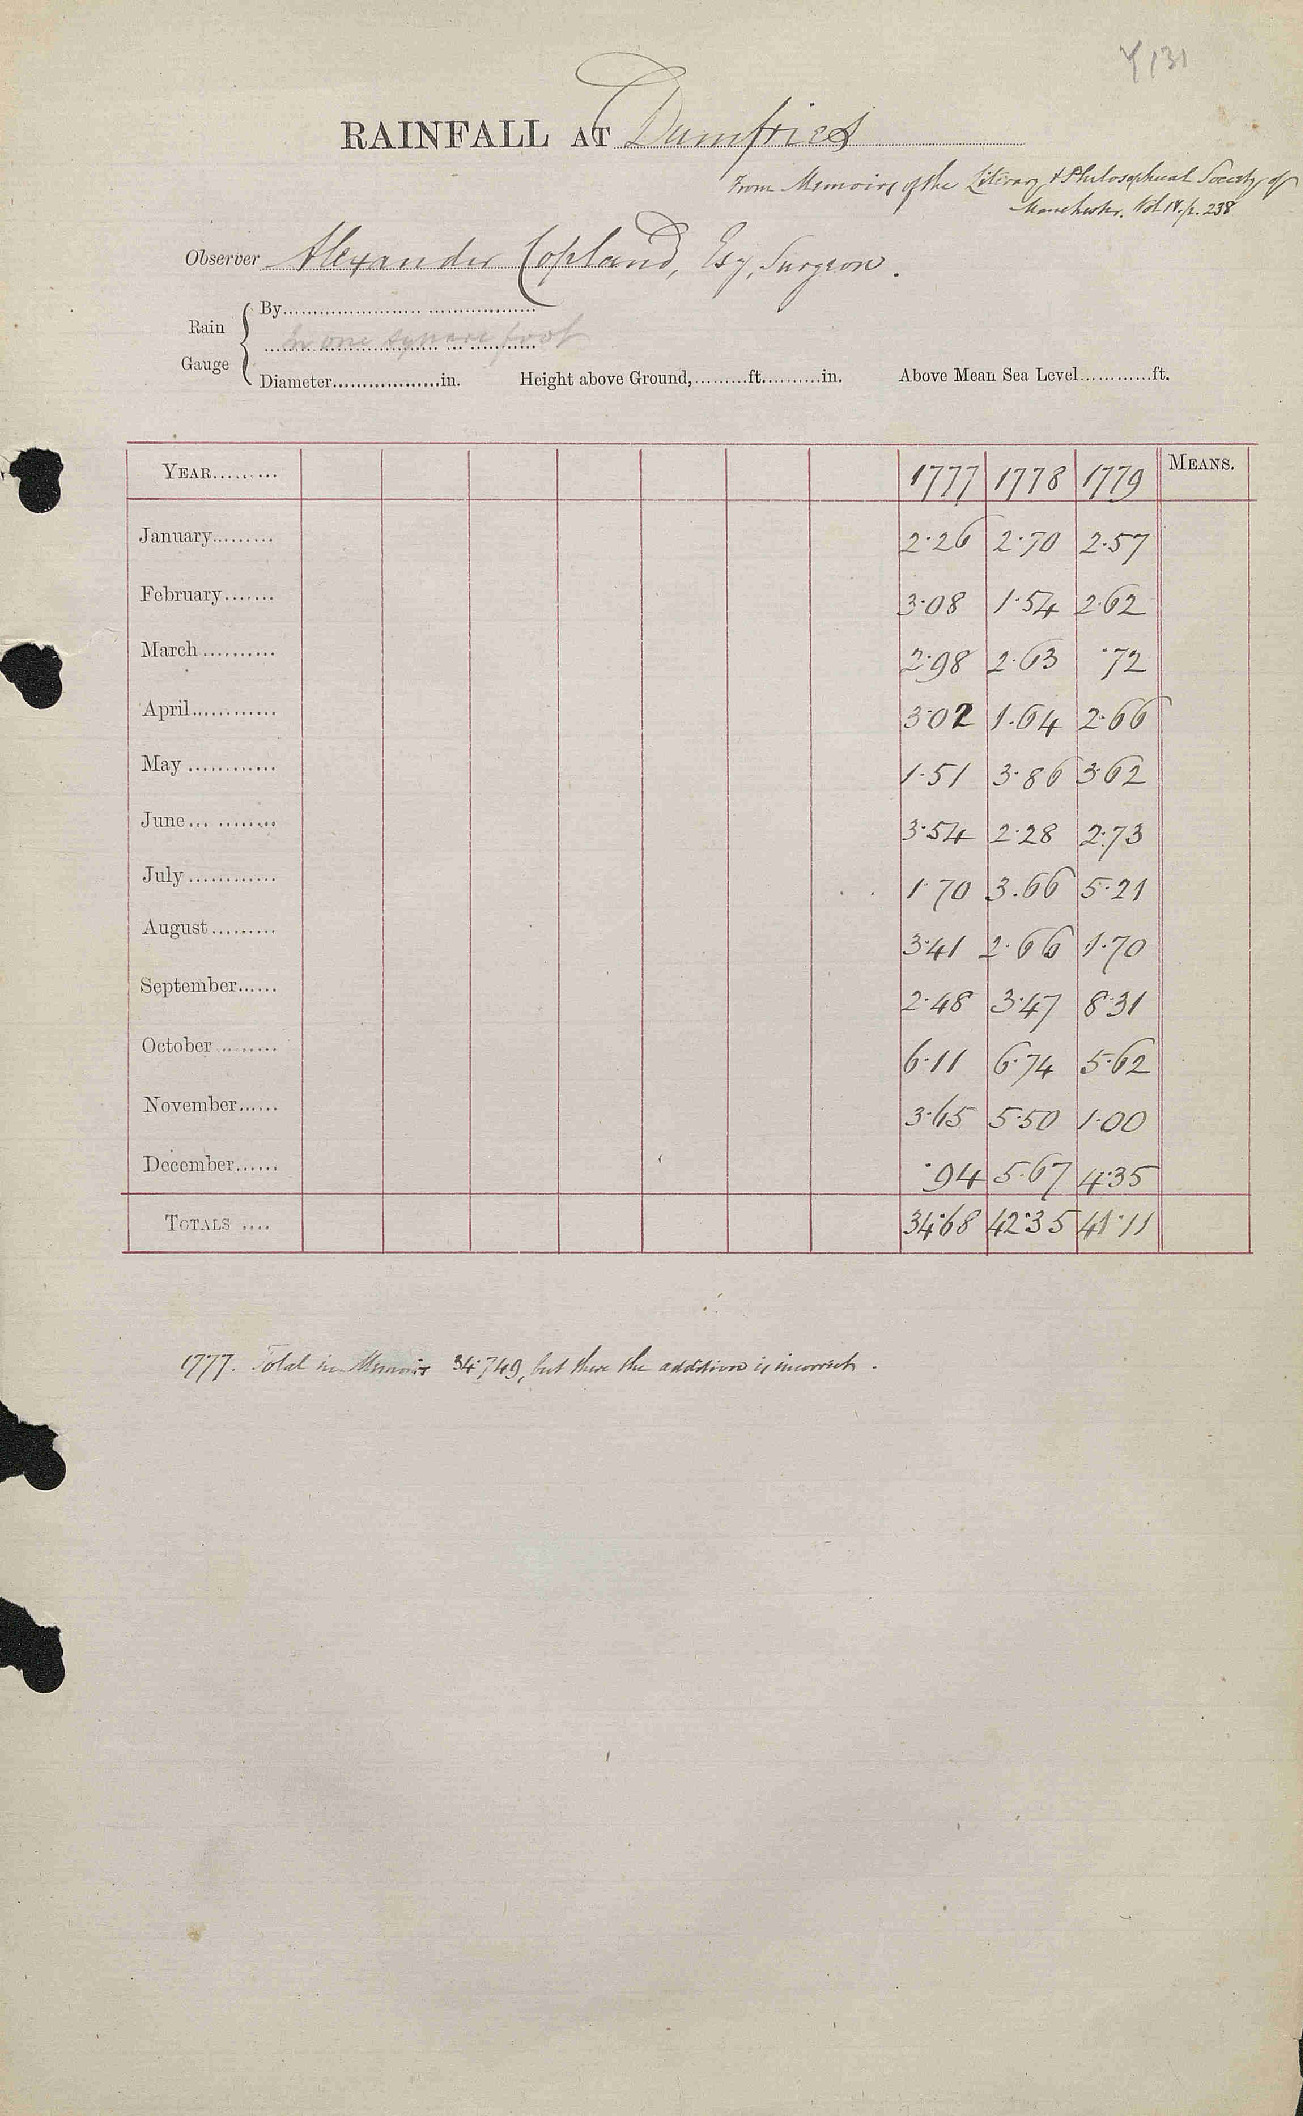 Y131
RAINFALL AT Dumfries
From Memoirs of the Literary & Philosophical Society of
Manchester. Vol IV. p. 238
Observer Alexander Copland, Esq, Surgeon.
Rain Gauge { By
In one square foot
Diameter in. Height above Ground, ft. in. Above Mean Sea Level ft.
YEAR 1777 1778 1779 MEANS.
January 2.26 2.70 2.57
February 3.08 1.54 2.62
March 2.98 2.63 .72
April 3.02 1.64 2.66
May 1.51 3.86 3.62
June 3.54 2.28 2.73
July 1.70 3.66 5.21
August 3.41 2.66 1.70
September 2.48 3.47 8.31
October 6.11 6.74 5.62
November 3.65 5.50 1.00
December .94 5.67 4.35
TOTALS 34.68 42.35 41.11
1777. Total in Memoirs 34.749, but there the addition is incorrect.